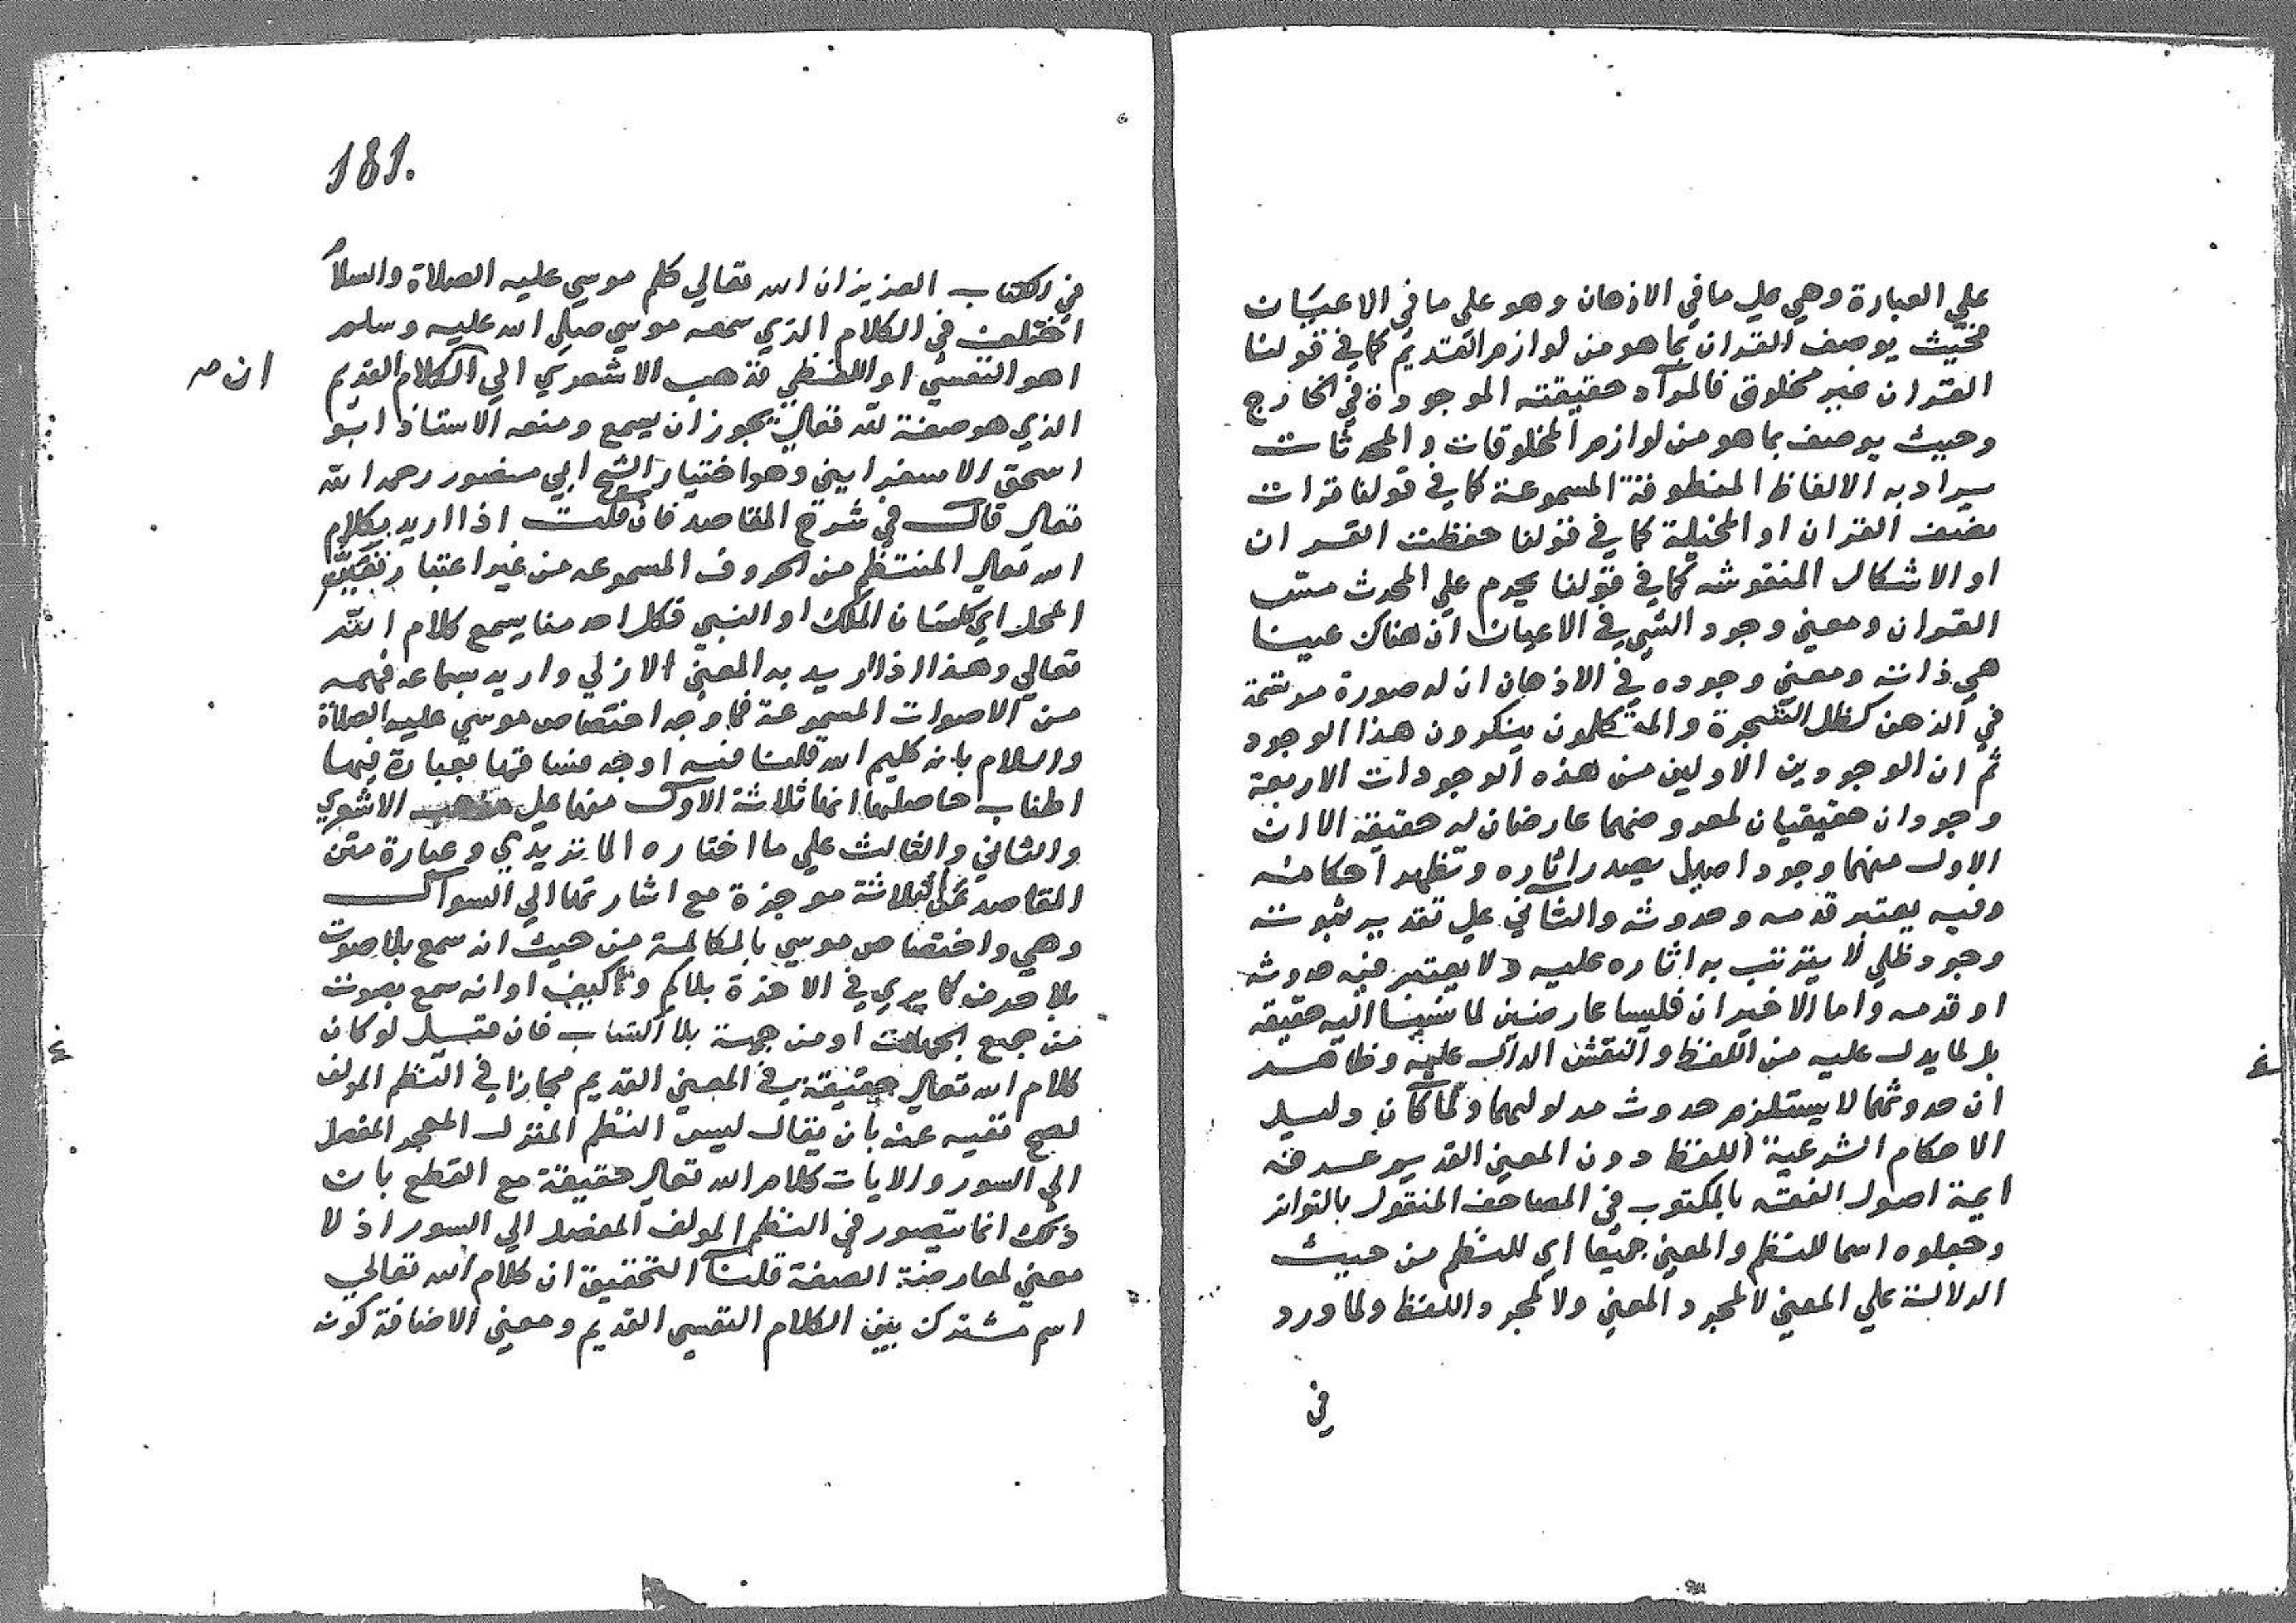 علي العبارة وهي علي ما في الاذهان وهو علي ما في الاعيان
فحيث يوصف القران بما هو من لوازم القديم كما في قولنا
القران غير مخلوق فالمراد حقيقته الموجودة في الخارج
وحيث يوصف بما هو من لوازم المخلوقات والمحدثات
يراد به الالفاظ المنطوقة المسموعة كما في قولنا قرات
نصف القران او المخيلة كما في قولنا حفظت القران
او الاشكال المنقوشه كما في قولنا يحرم علي المحدث مس
القران ومعني وجود الشي في الاعيان ان هناك عينا
هي ذاته ومعني وجوده في الاذهان ان له صورة مرتسمة
في الذهن كظل الشجرة والمتكلمون ينكرون هذا الوجود
ثم ان الوجودين الاولين من هذه الوجودات الاربعة
وجودان حقيقيان لمعروضهما عارضان له حقيقة الا ان
الاول منهما وجود اصيل يصدر اثاره وتظهر احكامه
وفيه يعتبر قدمه وحدوثه والثاني علي تقدير ثبوته
وجود ظلي لا يترتب به اثاره عليه ولا يعتبر فيه حدوثه
او قدمه واما الاخيران فليسا عارضين لما نسبنا اليه حقيقه
بل لما يدل عليه من اللفظ والنقش الدال عليه وظاهر
ان حدوثهما لا يستلزم حدوث مدلوليهما ولما كان دليل
الاحكام الشرعية اللفظ دون المعني القديم عرفه
ايمة اصول الفقه بالمكتوب في المصاحف المنقول بالتواتر
وجعلوه اسما للنظم والمعني جميعا اي للنظم من حيث
الدلالة علي المعني لا لمجرد المعني ولا لمجرد اللفظ ولما ورد
في
181.
في الكتاب العزيز ان الله تعالي كلم موسي عليه الصلاة والسلام
اختلف في الكلام الذي سمعه موسي صلي الله عليه وسلم
اهو النفسي او اللفظي فذهب الاشعري الي الكلام القديم
ان صـ
الذي هو صفة لله تعالي يجوز ان يسمع ومنعه الاستاذ ابو
اسحق الاسفرايني وهو اختيار الشيخ ابي منصور رحمه الله
تعالي قال في شرح المقاصد فان قلت اذا اريد بكلام
الله تعالي المنتظم من الحروف المسموعه من غير اعتبار تعيين
المحل اي كلسان الملك او النبي فكل احد منا يسمع كلام الله
تعالي وهذا اذا اريد به المعني الازلي واريد بسماعه فهمه
من الاصوات المسموعة فما وجه اختصاص موسي عليه الصلاة
والسلام بانه كليم الله قلنا فيه اوجه فساقها بعبارة فيها
اطناب حاصلها انها ثلاثة الاول منها علي مذهب الاشعري
والثاني والثالث علي ما اختاره الماتريدي وعبارة متن
المقاصد علي الثلاثة موجزة مع اشارتها الي السوال
وهي واختصاص موسي بالمكالمة من حيث انه سمع بلا صوت
بلا حرف كما يري في الاخرة بلا كم ولا كيف او انه سمع بصوت
من جميع الجهات او من جهة بلا اكتساب فان قيل لو كان
كلام الله تعالي حقيقة في المعني القديم مجازا في النظم المولف
لصح نفيه عنه بان يقال ليس النظم المنزل المعجز المفصل
الي السور والايات كلام الله تعالي حقيقة مع القطع بان
ذلك انما يتصور في النظم المولف المفصل الي السور اذ لا
معني لمعارضة الصفة قلنا التحقيق ان كلام الله تعالي
اسم مشترك بين الكلام النفسي القديم ومعني الاضافة كونه